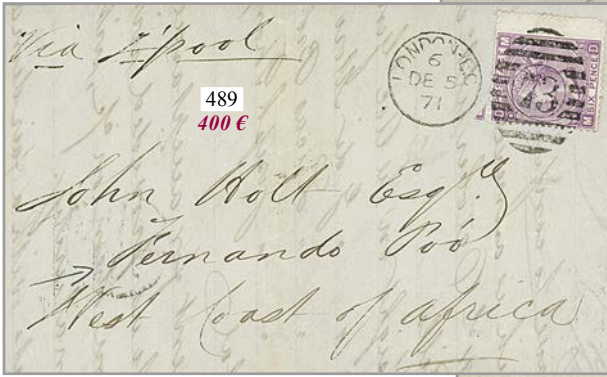 Via L'pool
LONDON·E.C
6
DE 5
71
73
SIX PENCE
489
400 €
John Holt Esqre
Fernando Poó
West Coast of Africa